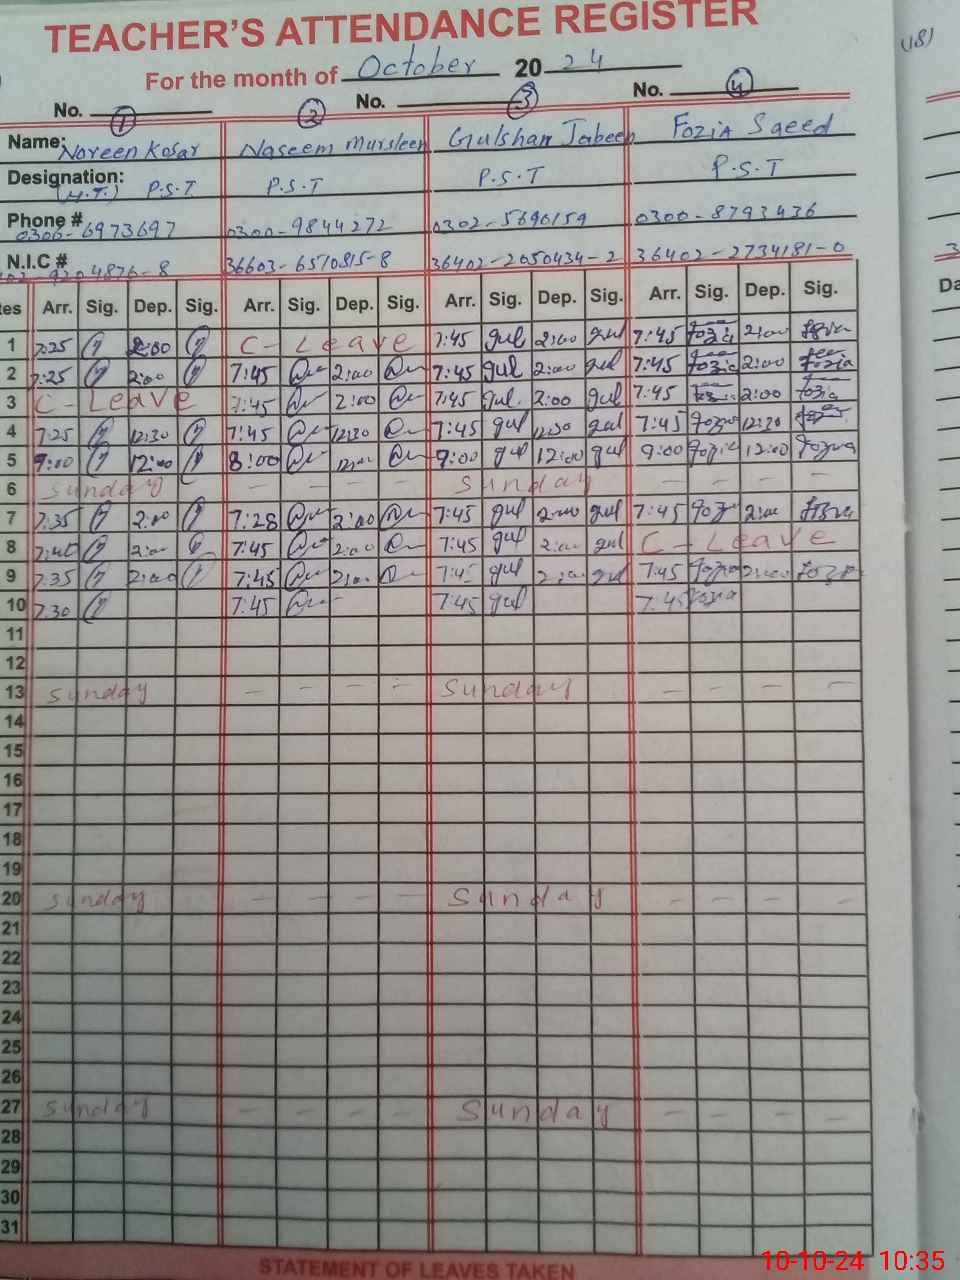 TEACHER'S ATTENDANCE REGISTER
For the month of October 2024
(18)
No. 1 2 No. 3 No. 4
Name: Noreen Kosar Naseem Mursleen Gulshan Jabeen Fozia Saeed
Designation: (H.T.) P.S.T P.S.T P.S.T P.S.T
Phone # 0306-6973697 0300-9844272 0302-5690159 0300-8793436
N.I.C # 9204876-8 36603-6510815-8 36402-2050434-2 36402-2734181-0
tes Arr. Sig. Dep. Sig. Arr. Sig. Dep. Sig. Arr. Sig. Dep. Sig. Arr. Sig. Dep. Sig.
Da
1 7:25 2:00 C-Leave 7:45 gul 2:00 gul 7:45 fozia 2:00 fozia
2 7:25 2:00 7:45 2:00 7:45 gul 2:00 gul 7:45 fozia 2:00 fozia
3 C-Leave 7:45 2:00 7:45 gul 2:00 gul 7:45 2:00 fozia
4 7:25 12:30 7:45 12:30 7:45 gul 12:30 gul 7:45 fozia 12:30
5 9:00 12:00 8:00 12:00 9:00 gul 12:00 gul 9:00 fozia 12:00 fozia
6 Sunday - - - - Sunday - - - -
7 7:35 2:00 7:28 2:00 7:45 gul 2:00 gul 7:45 fozia 2:00 fozia
8 7:40 2:00 7:45 2:00 7:45 gul 2:00 gul C-Leave
9 7:35 2:00 7:45 2:00 7:45 gul 2:00 gul 7:45 fozia 2:00 fozia
10 7:30 7:45 7:45 gul 7:45 fozia
11
12
13 Sunday - - - - Sunday - - - -
14
15
16
17
18
19
20 Sunday - - - - Sunday - - - -
21
22
23
24
25
26
27 Sunday - - - - Sunday - - - -
28
29
30
31
STATEMENT OF LEAVES TAKEN
10-10-24 10:35